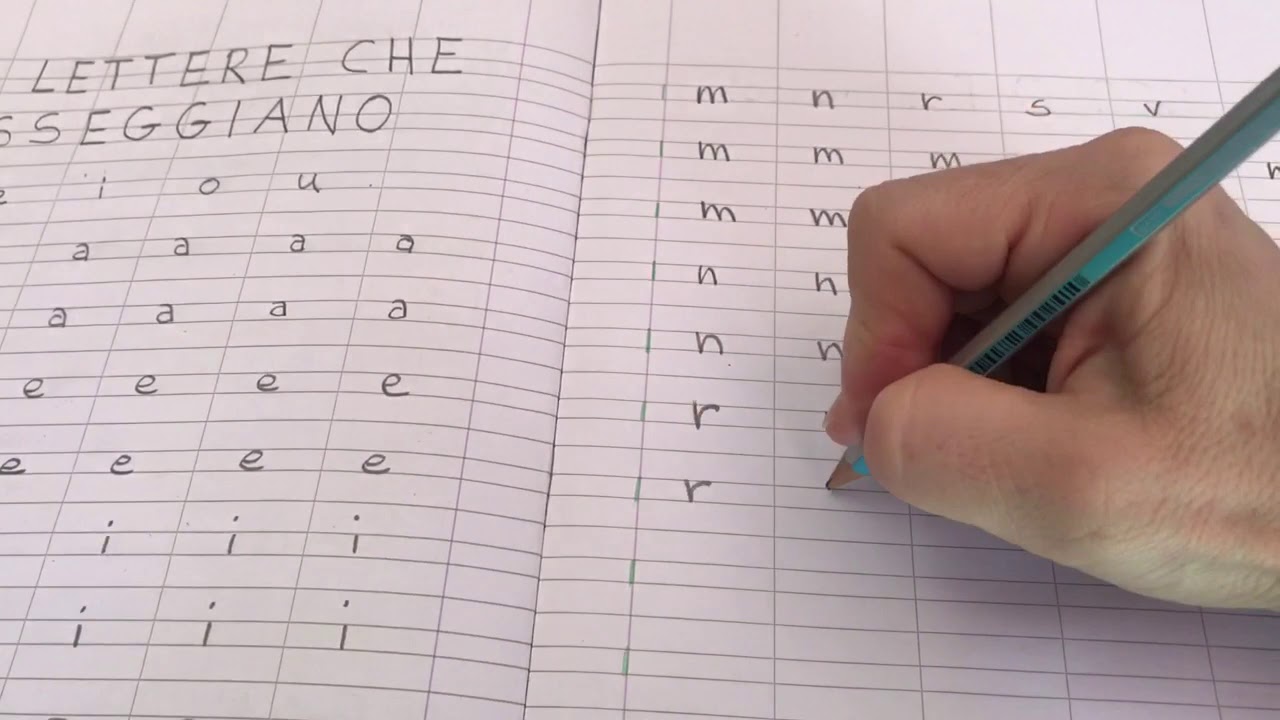 LETTERE CHE
SSEGGIANO
e i o u
a a a a
a a a a
e e e e
e e e e
i i i
i i i
m n r s v
m m m
m m
n n
n n
r
r